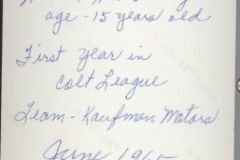 age - 15 years old
First year in
Colt League
Team - Kaufman Motors
June